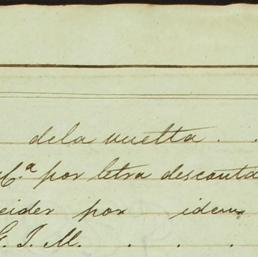 dela vuelta . .
C.ª por letra desconta
eider por idem
G. J. M. . . .